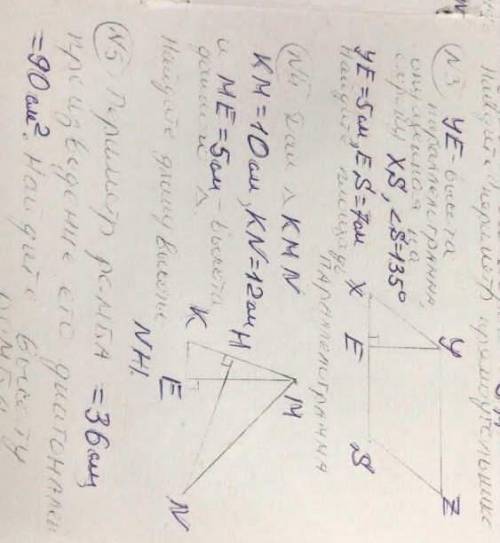 Найдите периметр прямоугольника
N3 YE - высота
параллелограмма
опущенная на
сторону XS, ∠S=135°
YE=5см, ES=7см
Найдите площадь
параллелограмма
X
Y
E
S
Z
N4 Дан △ KMN
KM=10см, KN=12см
и ME=5см - высота
данного △
Найдите длину высоты
NH.
K
H
M
E
N
N5 Периметр ромба =36см,
произведение его диагоналей
=90см². Найдите высоту
ромба.